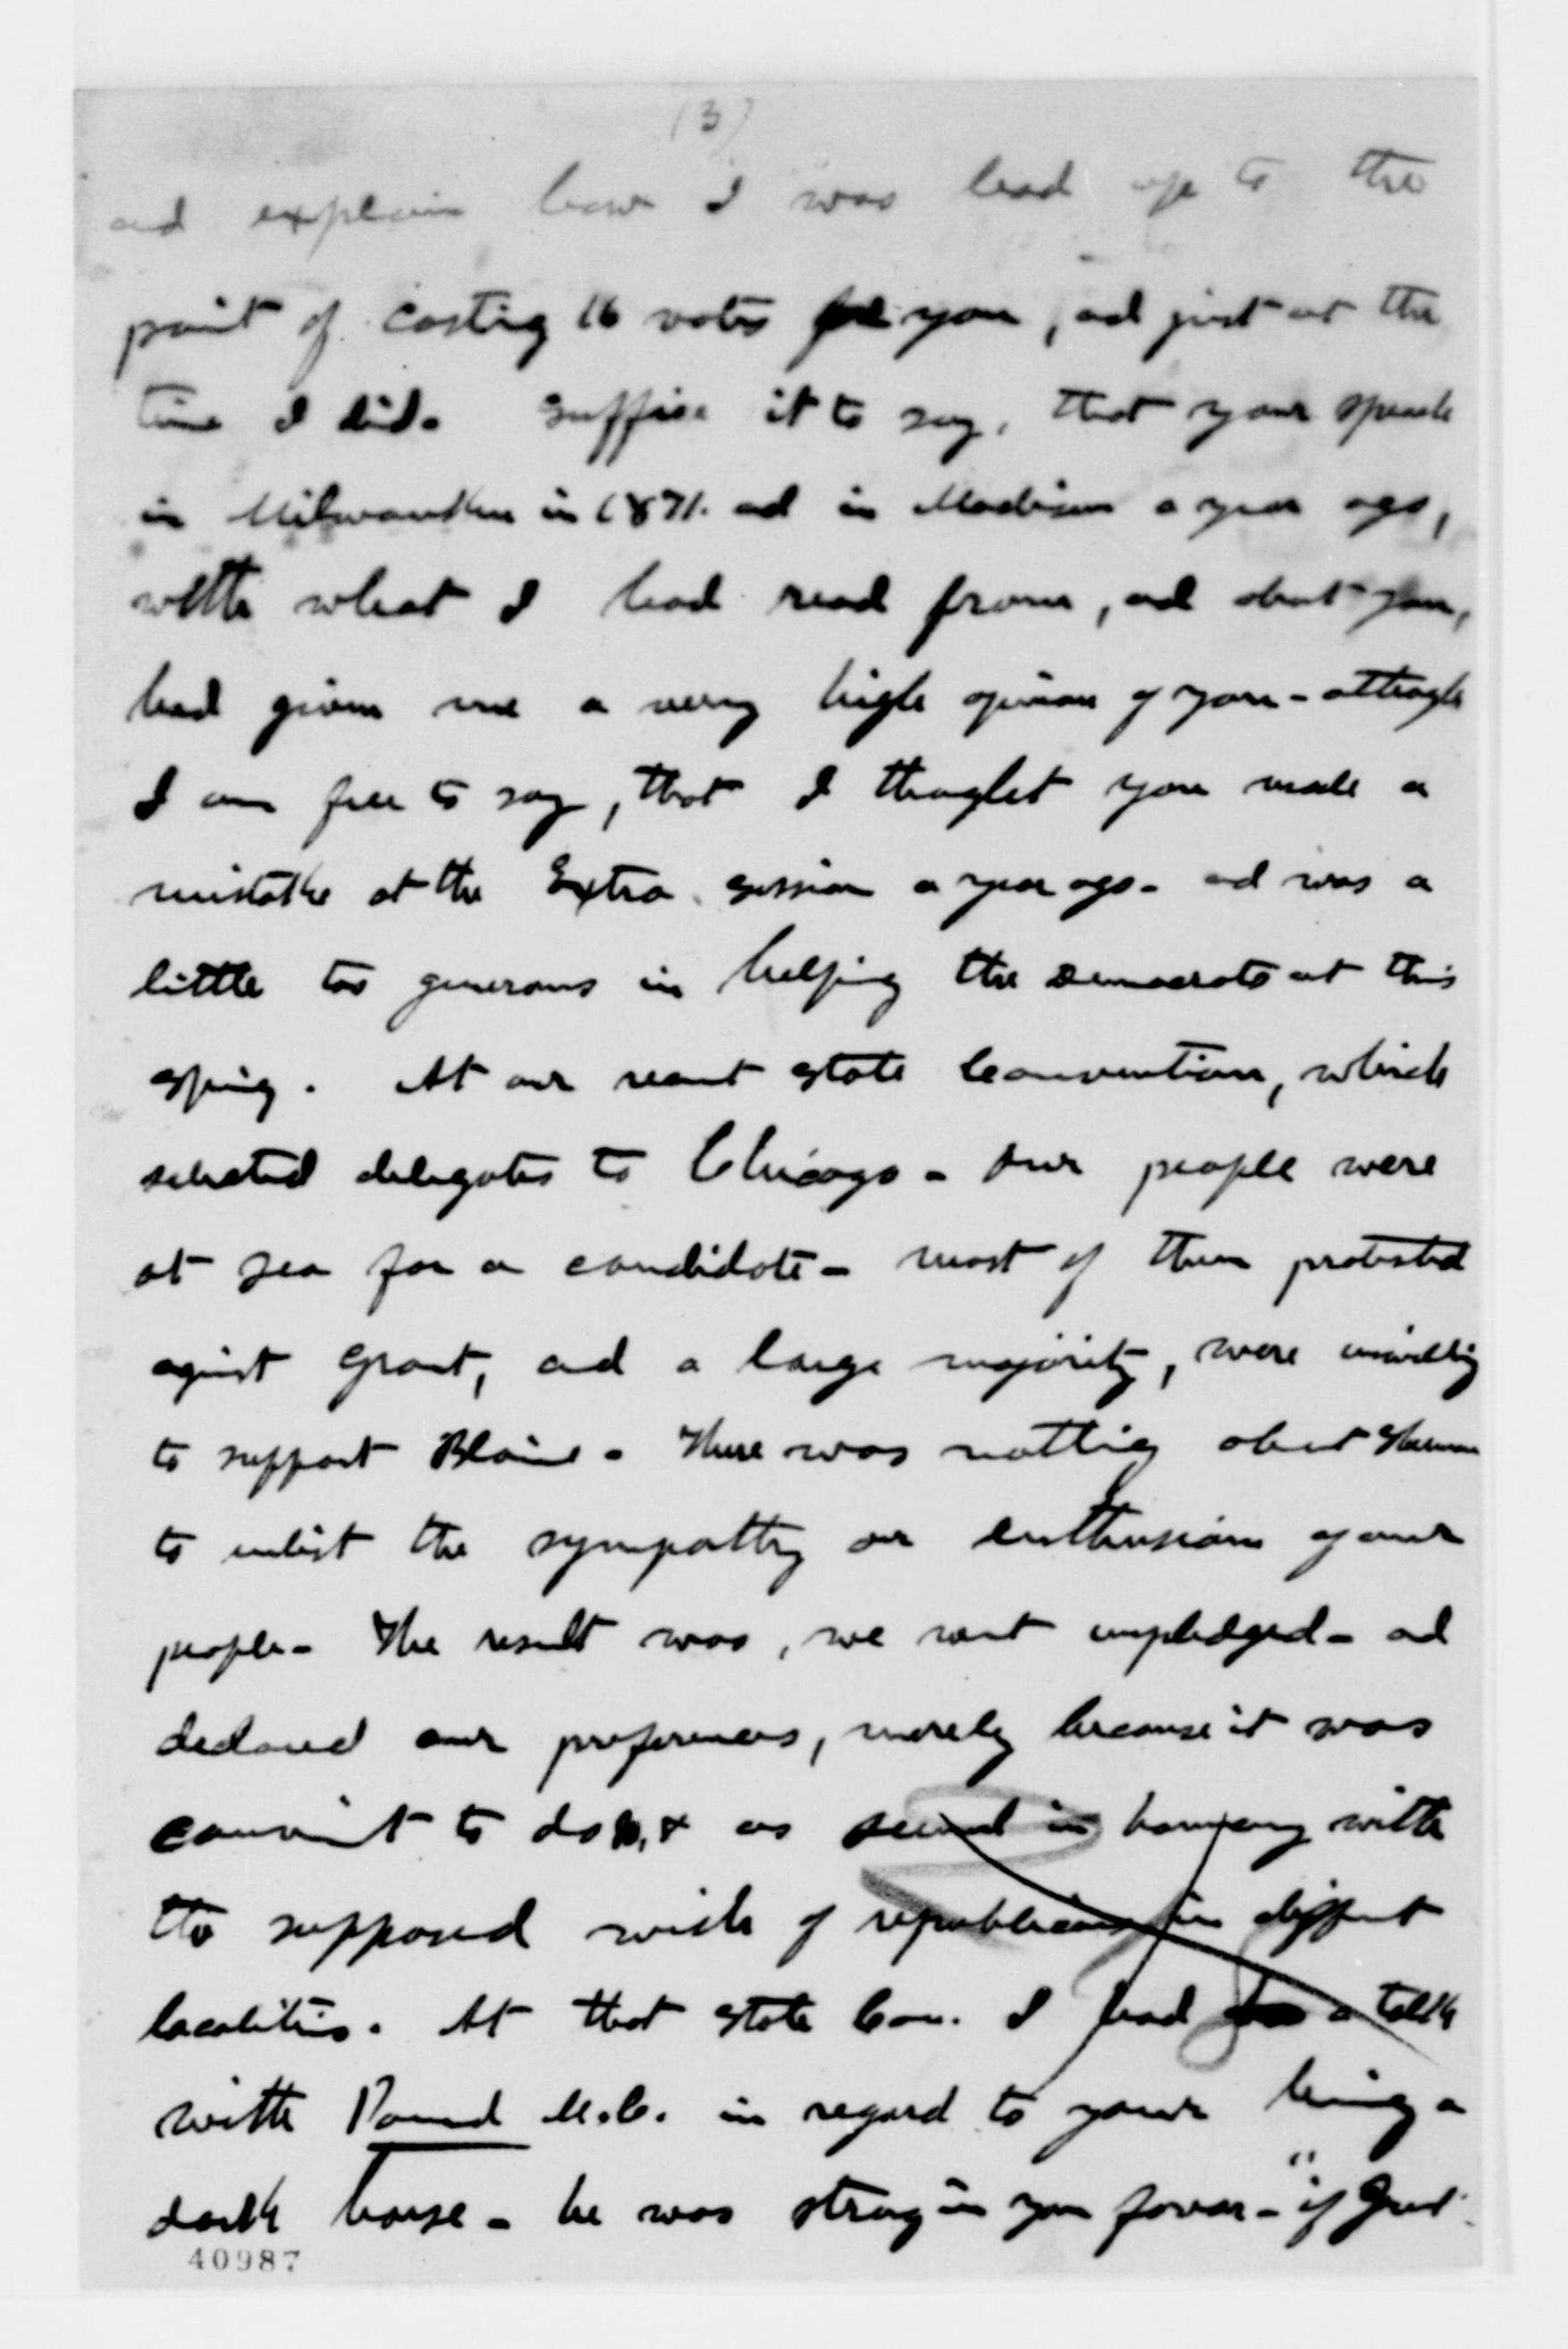 (3)
and explain how I was lead up to the
point of casting 16 votes for you, and just at the
time I did. Suffice it to say, that your speech
in Milwaukee in 1871. and in Madison a year ago,
with what I had read from, and about you,
had given me a very high opinion of you - although
I am free to say, that I thought you made a
mistake at the Extra session a year ago - and was a
little too generous in helping the Democrats at this
spring. At our recent State Convention, which
selected delegates to Chicago - our people were
at sea for a candidate - most of them protested
against Grant, and a large majority, were unwilling
to support Blaine. There was nothing about Sherman
to enlist the sympathy or enthusiasm of our
people - The result was, we went unpledged - and
declared our preferences, merely because it was
to do so, & as seemed in harmony with
the supposed wish of republicans in different
localities. At that State Con. I had a talk
with Pound M.C. in regard to your being a
dark horse - he was strong in your favor - "if
40987